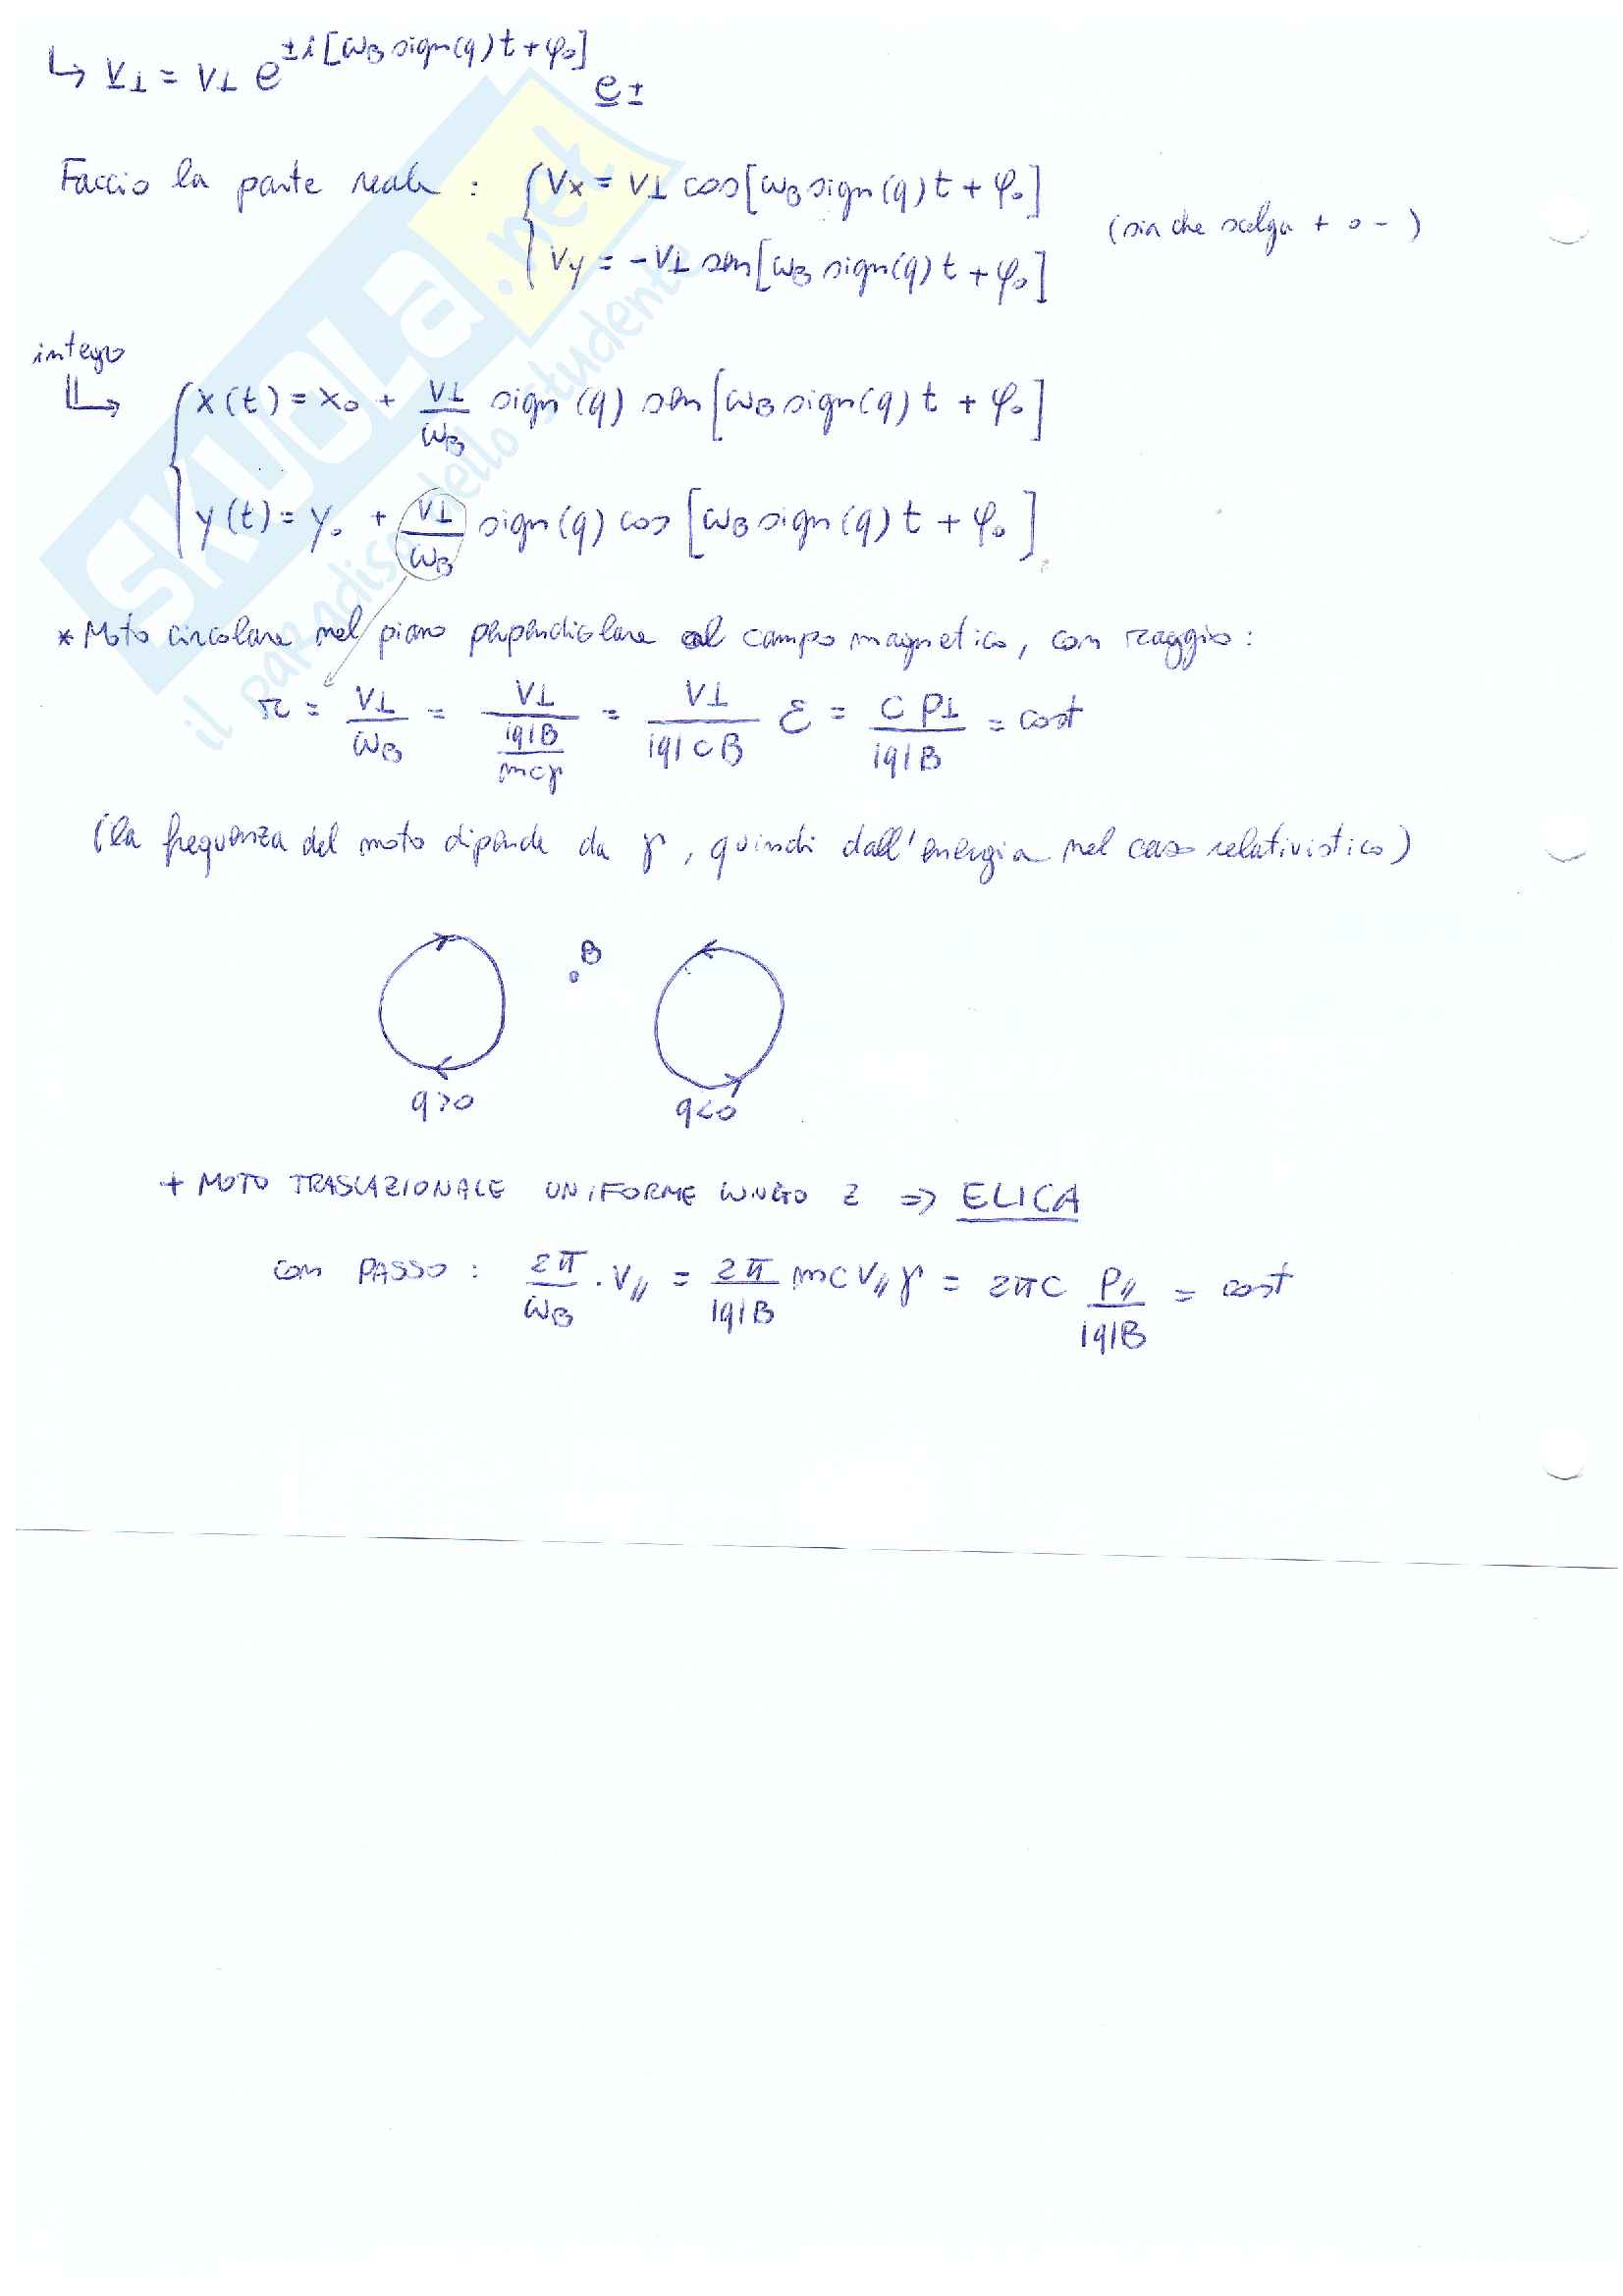 ↳ v⊥ = v⊥ e^{±i[ωB sign(q)t+φ₀]} e±
Faccio la parte reale : { Vx = V⊥ cos[ωB sign(q)t + φ₀]
(sia che scelga + o -)
Vy = -V⊥ sen[ωB sign(q)t + φ₀]
integro
x(t) = x₀ + V⊥/ωB sign(q) sen[ωB sign(q)t + φ₀]
y(t) = y₀ + V⊥/ωB sign(q) cos[ωB sign(q)t + φ₀]
* Moto circolare nel piano perpendicolare al campo magnetico, con raggio :
r = V⊥/ωB = V⊥/(|q|B/mcγ) = V⊥/(|q|cB) ε = c p⊥/(|q|B) = cost
(la frequenza del moto dipende da γ, quindi dall'energia nel caso relativistico)
B
q>0
q<0
+ MOTO TRASLAZIONALE UNIFORME LUNGO z ⇒ ELICA
con PASSO : 2π/ωB · V∥ = 2π/(|q|B) mcV∥γ = 2πc p∥/(|q|B) = cost
SKUOLA.net
il paradiso dello studente